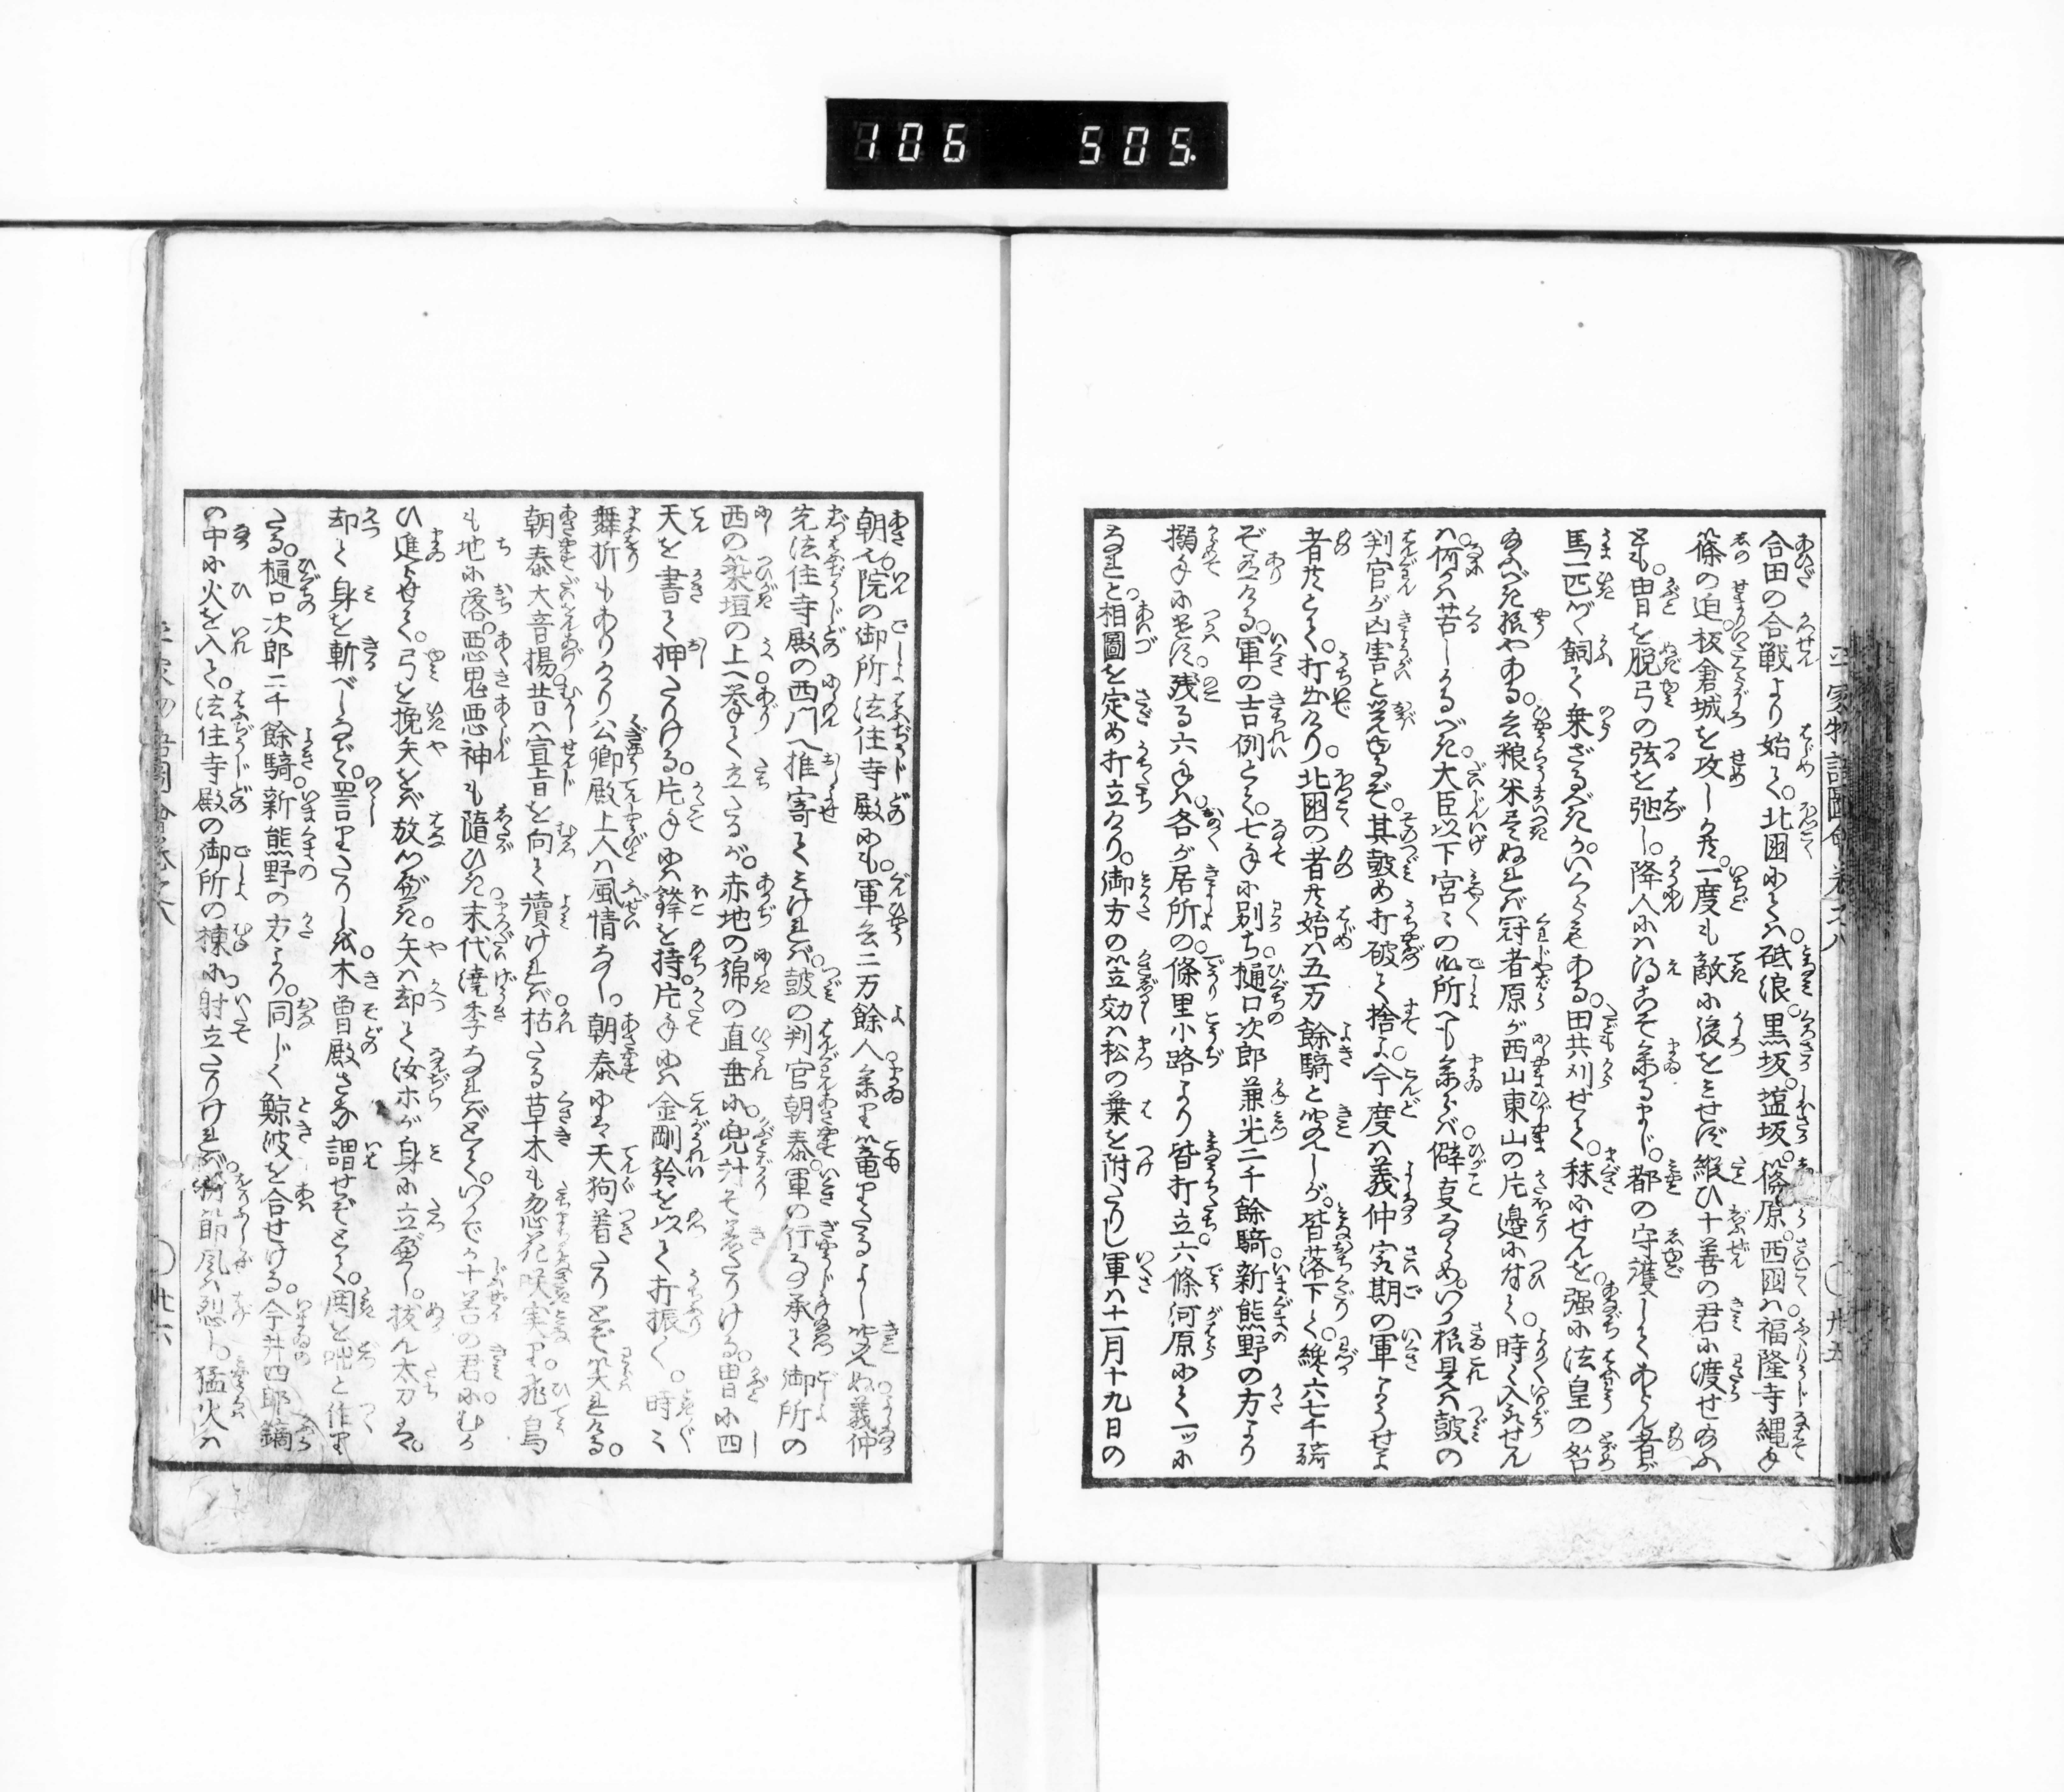 106 505
合田の合戦より始て。北国にてハ砥浪。黒坂。塩坂。篠原。西国ハ福隆寺縄手
篠の迫。板倉城を攻しかども。一度も敵に後をミせず。縦ひ十善の君に渡せ給ふ
とも。冑を脱弓の弦を弛し。降人にハ得こそ参るまじ。都の守護してあらん者が
馬一匹づゝ飼て乗ざるべきか。いくらもある。田共刈せて。秣にせんを。強に法皇の咎
給ふべき様やある。兵粮米尽ぬれバ。冠者原が西山東山の片邊に付て。時々入取せん
ハ。何かハ苦しかるべき。大臣以下宮々の御所へも参らバ。僻事ならめ。いか様是ハ鼓の
判官が凶害と覚ゆるぞ。其鼓め打破て捨よ。今度ハ義仲宮期の軍にてあらせよ
者共とて。打出けり。北国の者共始ハ五万餘騎と聞えしが。皆落下て。纔六七千騎
ぞ有ける。軍の吉例とて。七手に別ち。樋口次郎兼光二千餘騎。新熊野の方より
搦手に差遣す。残る六手ハ。各が居所の。條里小路より皆打立。六條河原にて一ッに
なれと。相圖を定め打立けり。御方の笠効ハ松の葉を附たりし。軍ハ十一月十九日の
平家物語圖會巻之八 〇卅五
朝也。院の御所法住寺殿にも。軍兵二万餘人。参り篭りたるよし聞えぬ。義仲
先法住寺殿の西門へ推寄てミけれバ。鼓の判官朝泰。軍の行事承て。御所の
西の築垣の上へ挙て立たるが。赤地の錦の直垂に。兜計ぞ着たりける。冑に四
天を書て押たりける。片手にハ鋒を持。片手にハ金剛鈴を以て打振て。時々
舞折もありけり。公卿殿上人ハ風情なし。朝泰にハ天狗着たりとぞ笑れける。
朝泰大音揚。昔ハ宣旨を向て讀けれバ。枯たる草木も忽花咲実り。飛鳥
も地に落。悪鬼悪神も隨ひき。末代澆季なれバとて。いかでか十善の君にむか
ひ進らせて。弓を挽矢をバ放つべき。矢ハ却て汝等が身に立べし。抜ん太刀ハ。
却て身を斬べしなど。詈りたりしを。木曽殿さな謂せぞとて。鬨を咄と作り
たる。樋口次郎二千餘騎。新熊野の方より。同じく鯨波を合せける。今井四郎鏑
の中に火を入て。法住寺殿の御所の棟に射立たりけれバ。折節風ハ烈し。猛火ハ
平家物語圖會巻之八 〇卅六